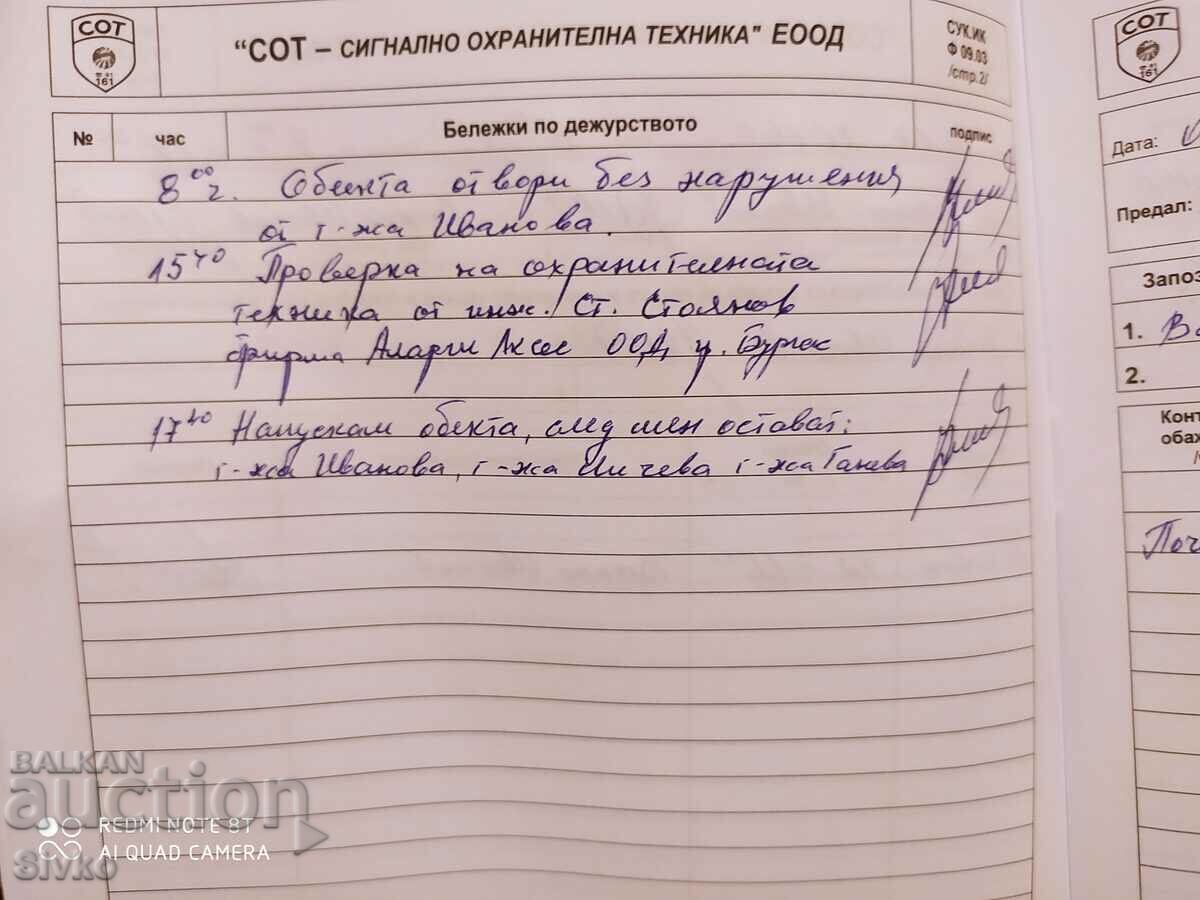 СОТ
161
"СОТ – СИГНАЛНО ОХРАНИТЕЛНА ТЕХНИКА" ЕООД
СУК.ИК
Ф 09.03
/стр.2/
№ час Бележки по дежурството подпис
8⁰⁰ ч. Обекта отвори без нарушения
от г-жа Иванова.
15⁴⁰ Проверка на охранителната
техника от инж. Ст. Стоянов
фирма Аларм ООД гр. Бургас
17⁴⁰ Напускам обекта, след мен остават:
г-жа Иванова, г-жа Иичева г-жа Ганева
СОТ
161
Дата:
Предал:
Запоз
1. Ва
2.
Конт
обаж
Поч
BALKAN
auction
REDMI NOTE 8T
AI QUAD CAMERA
Sivko